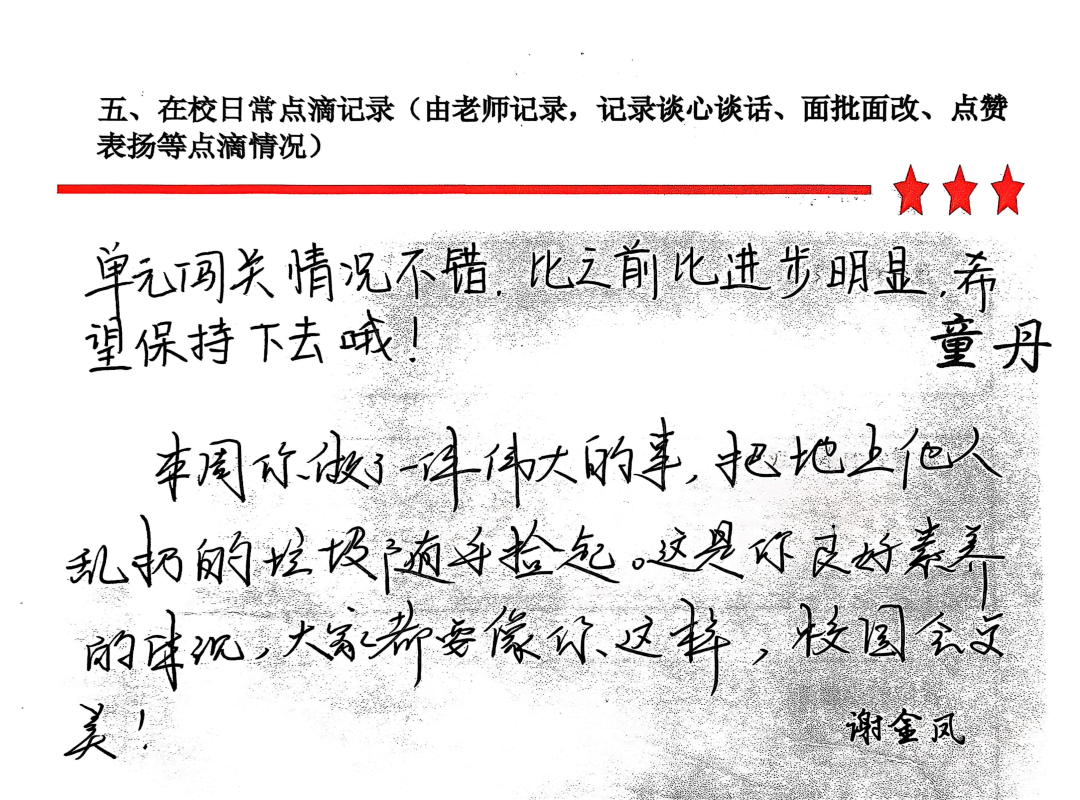 五、在校日常点滴记录（由老师记录，记录谈心谈话、面批面改、点赞
表扬等点滴情况）
单元闯关情况不错，比之前比进步明显，希
望保持下去哦！
童丹
本周你做了一件伟大的事，把地上他人
乱扔的垃圾随手捡起。这是你良好素养
的体现，大家都要像你这样，校园会更
美！
谢金凤